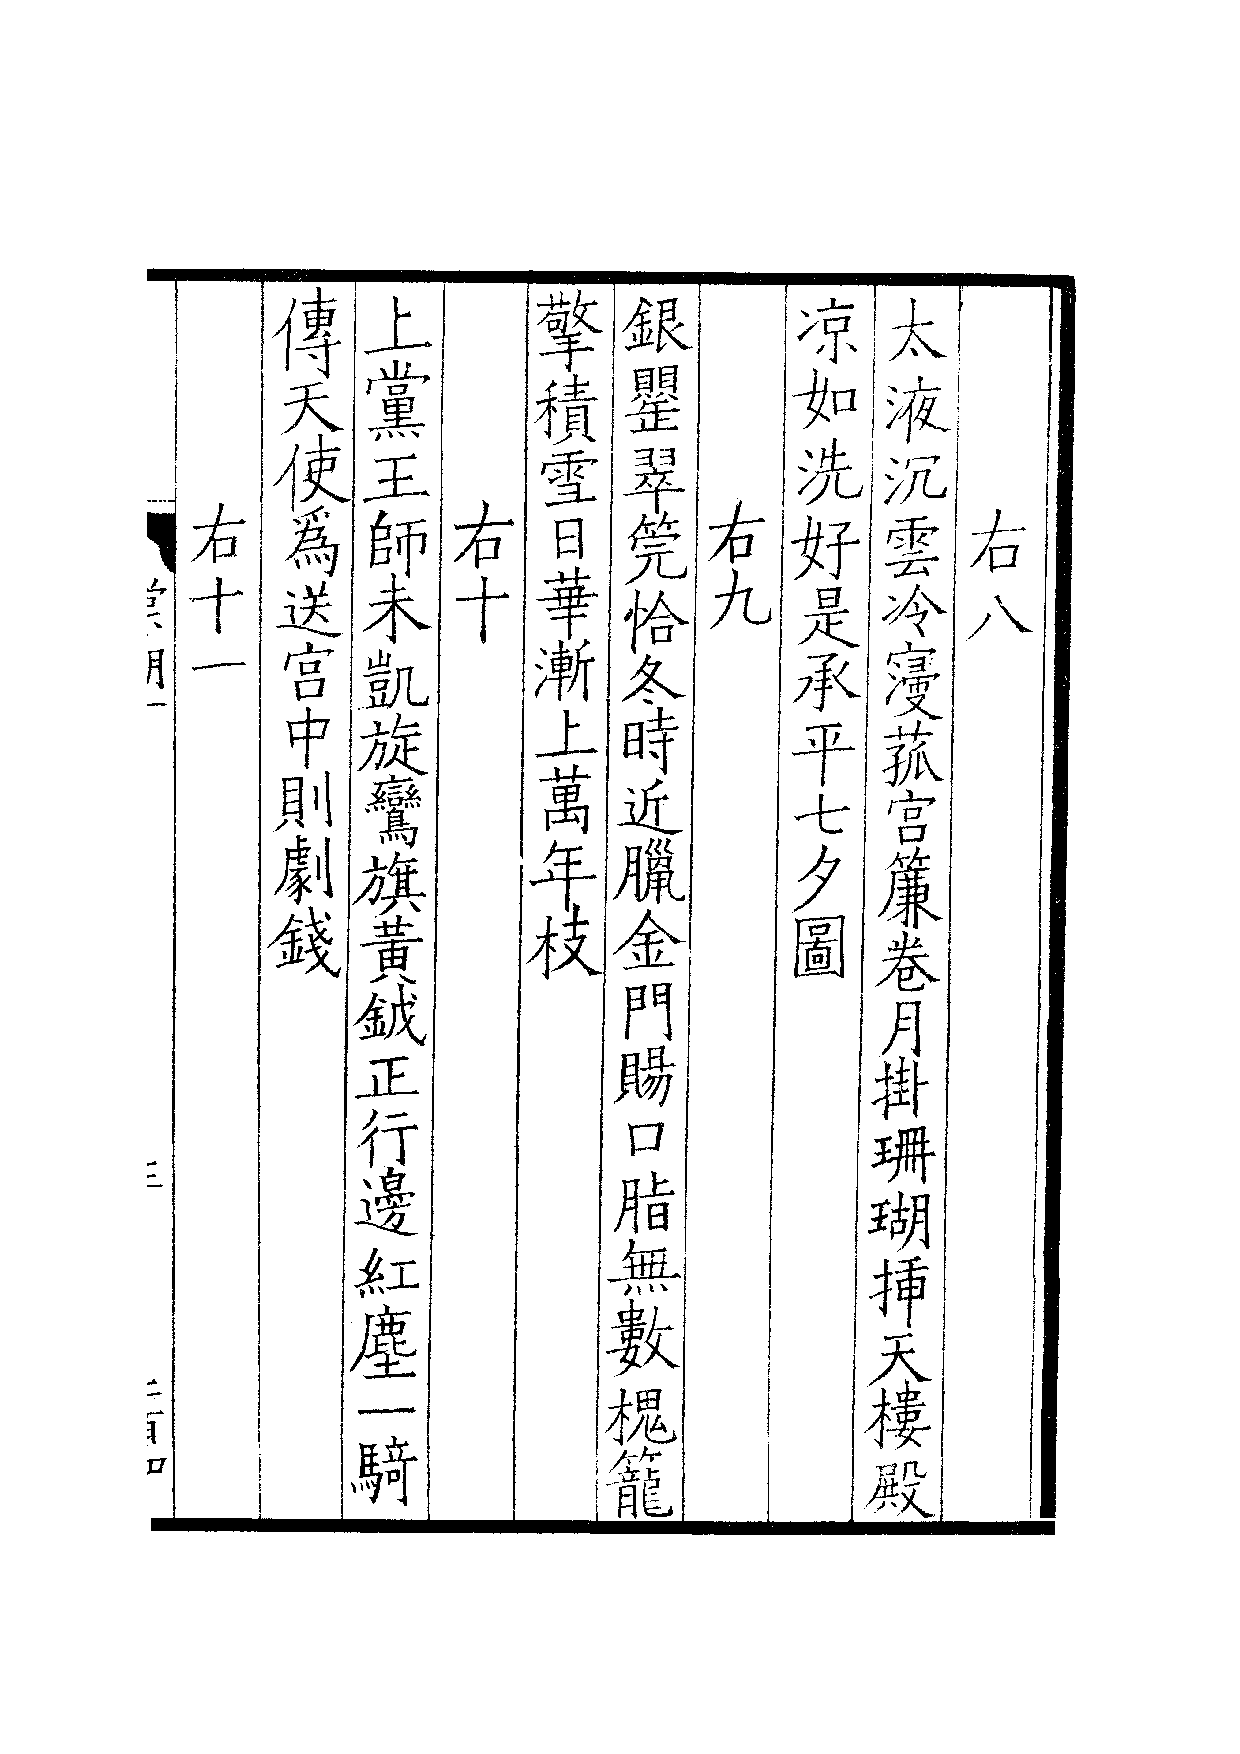 右八
太液沉雲冷寖菰宮簾卷月掛珊瑚挿天樓殿
凉如洗好是承平七夕圖
右九
銀罌翠筦恰冬時近臘金門賜口脂無數槐籠
擎積雪日華漸上萬年枝
右十
上黨王師未凱旋鸞旗黃鉞正行邊紅塵一騎
傳天使爲送宮中則劇錢
右十一